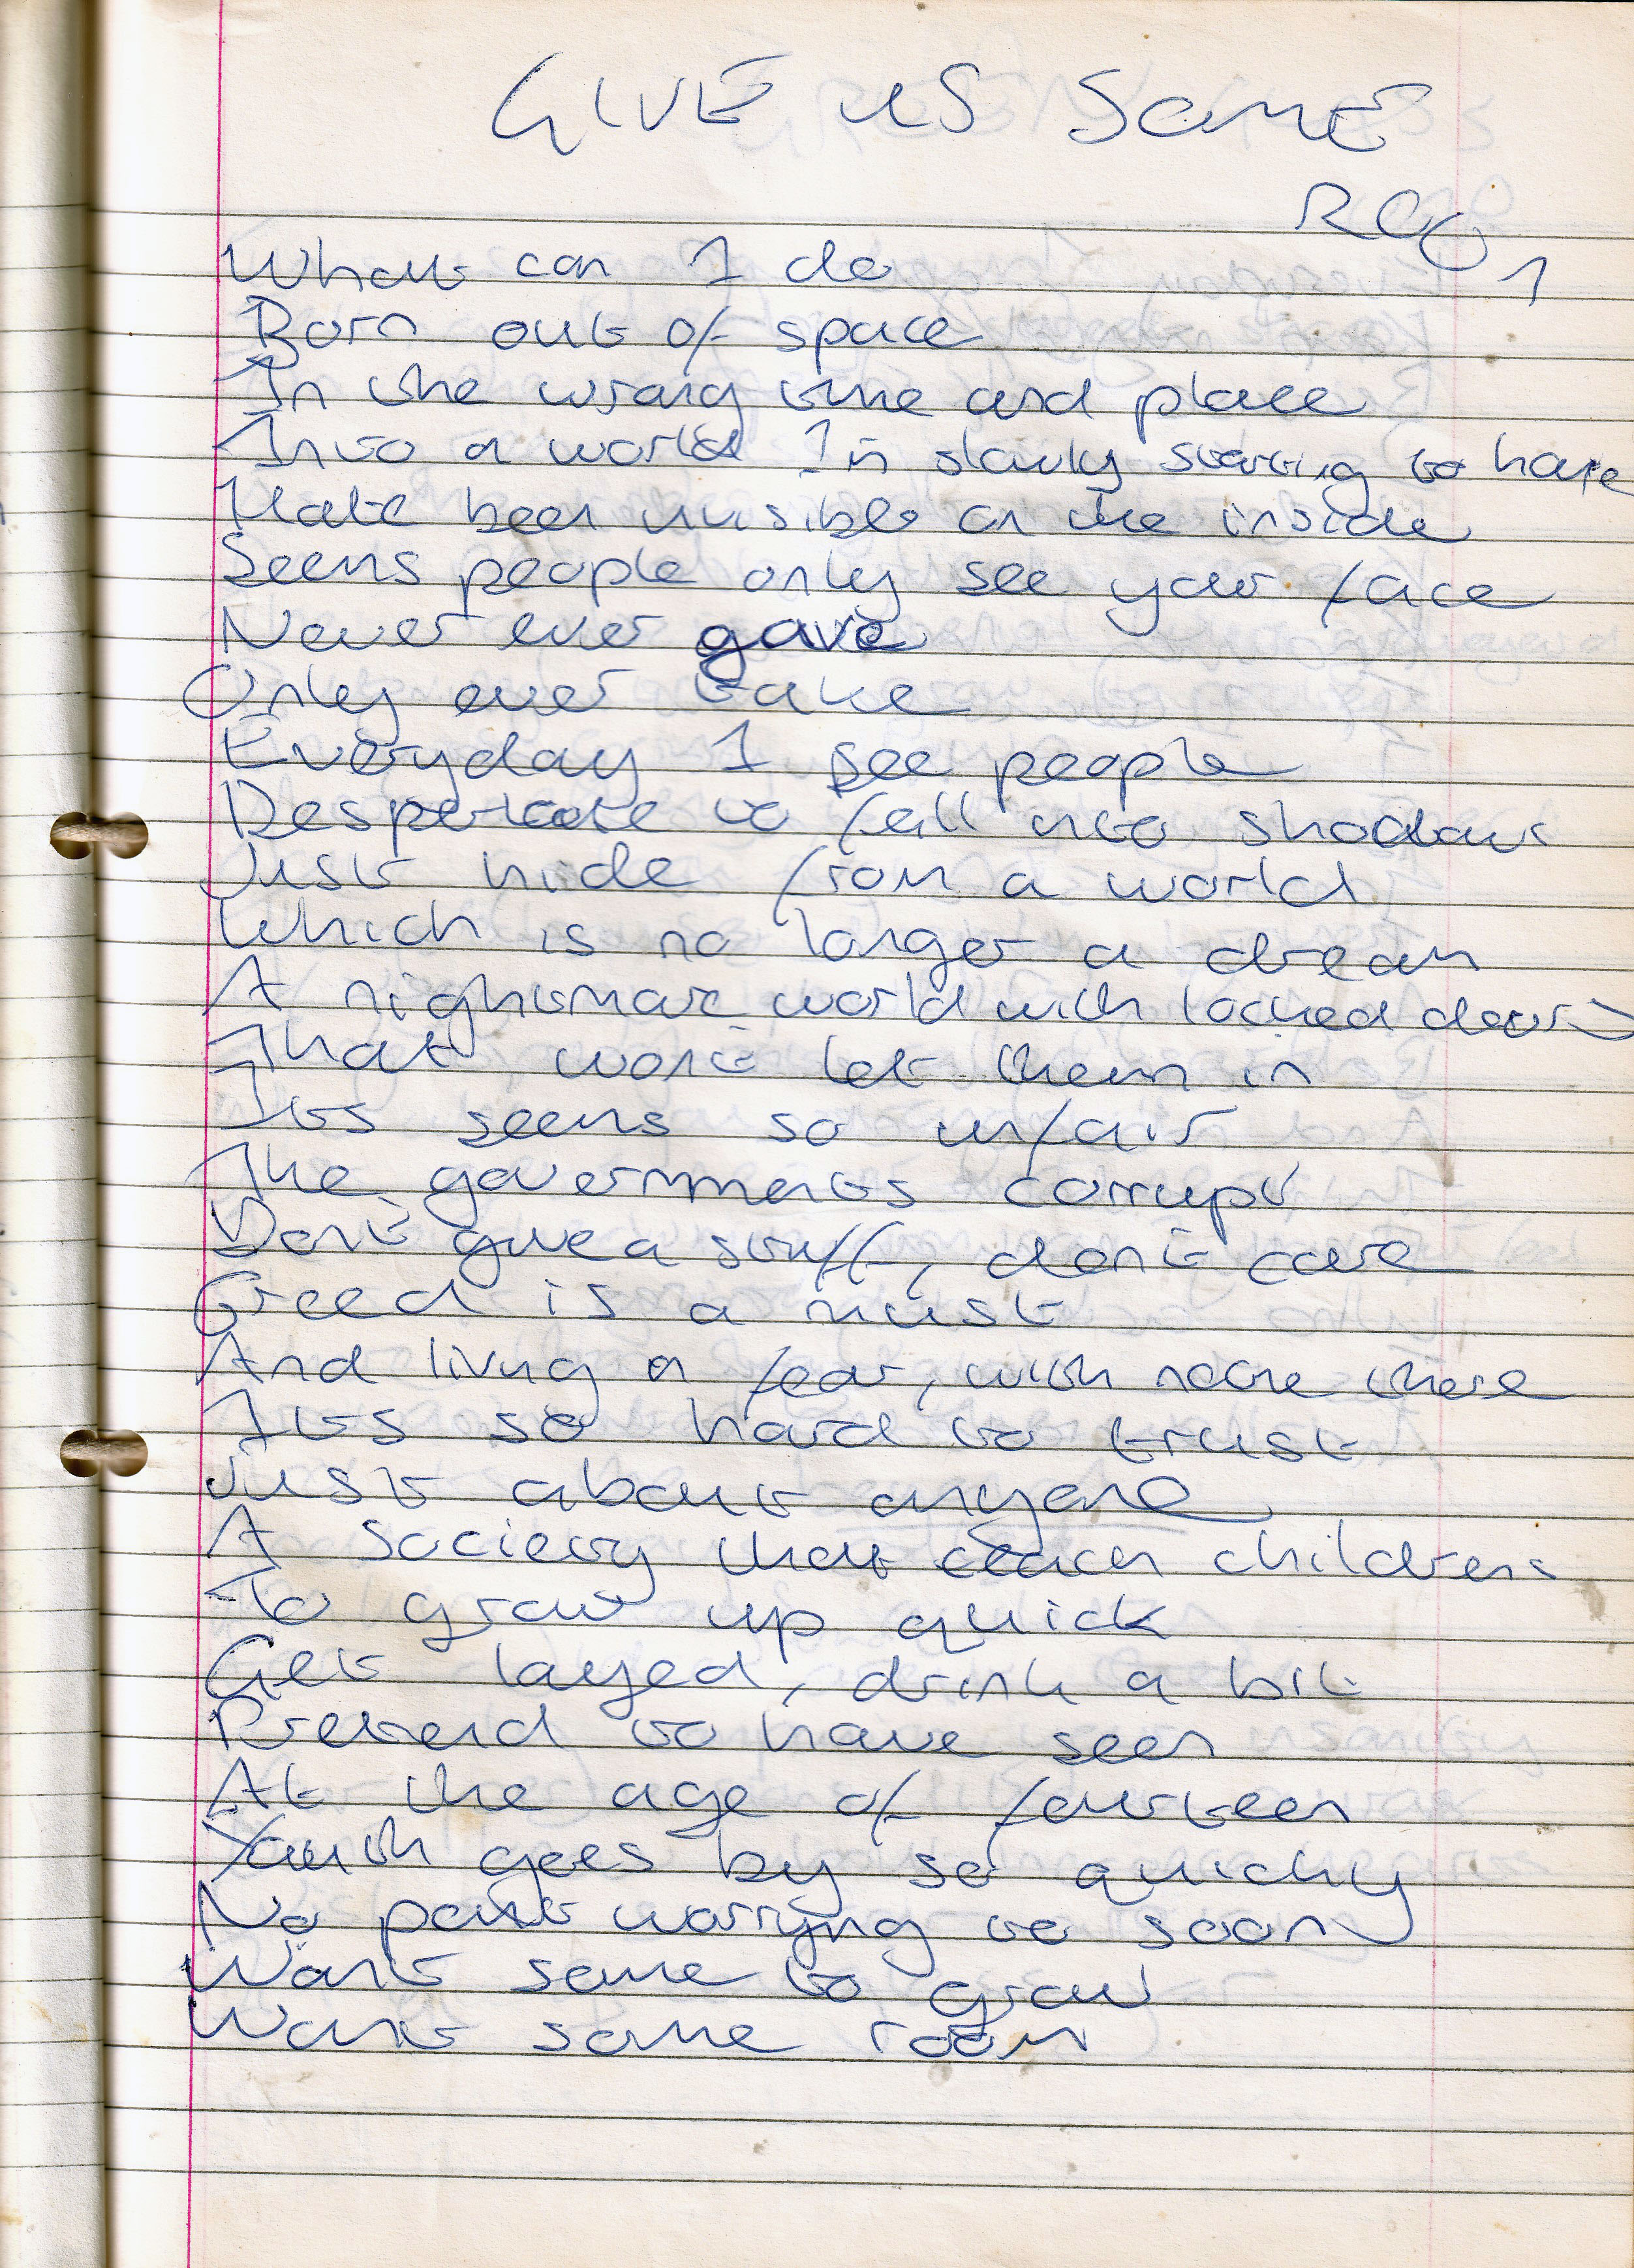 GIVE US SOME
ROOM
What can I do
Born out of space
In the wrong time and place
Into a world I'm slowly starting to hate
Hate been invisible on the inside
Seems people only see your face
Never ever gave
Only ever take
Everyday I see people
Desperate to fall into shadows
Just hide from a world
Which is no longer a dream
A nightmare world with locked doors
That won't let them in
Its seems so unfair
The governments corrupt
Don't give a stuff, don't care
Greed is a must
And living a fear, with none there
Its so hard to trust
Just about anyone
A society that teach children
To grow up quick
Get layed, drink a bit
Pretend to have seen
At the age of fourteen
Youth goes by so quickly
No point worrying to soon
Want some to grow
Want some room